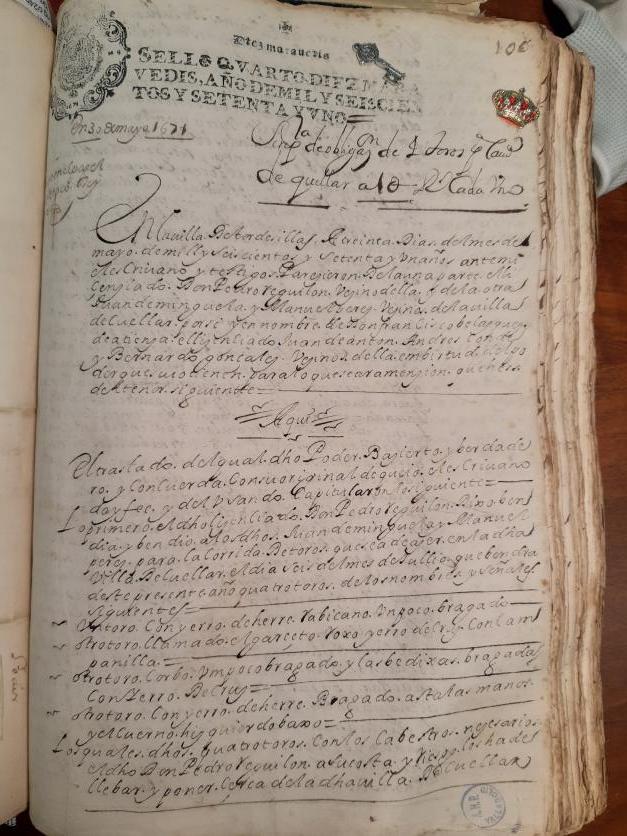 Diez marauedis
SELLO QVARTO, DIEZ MARA
VEDIS, AÑO DE MIL Y SEISCIEN
TOS Y SETENTA Y VNO
106
en 30 de mayo 1671
de quellar a 10 de Cada Vno
En la villa de tordesillas. A treinta Dias. del mes de
mayo. de mill y seiscientos. y setenta y Vn años antemi
el escriuano y testigos. Parezieron. De la una parte. el li
çençiado. Don Pedro reguilon. Vezino della. y de la otra
Juan deminguela. y Manuel perez. Vezinos. de la villa
de Cuellar. por si y en nombre. de Don françisco belazquez
de atienza. el liçençiado Juan de anton. Andres
y Bernardo gonçalez. Vezinos. della. en birtud. del po
der que. Para lo que se ara mençion. que es
del tenor. siguiente
Aqui
El traslado. del qual. dho Poder. Ba çierto. y berdade
ro. y Concuerda. Con su original de que yo. el escriuano
doy fee. y del Vsando. Capitularon lo siguiente
Lo primero. el dho liçençiado. Don Pedro reguilon. dixo. ben
dia. y bendio. a los dhos. Juan deminguela y Manuel
perez. para. la Corrida. De toros. que se a de açer. en la dha
villa. De Cuellar. el dia seis del mes de Jullio. que bendra
deste presente. año quatro toros. de los nombres. y señales
siguientes
Vn toro. Con yerro. de herre. rabicano. Vn poco. bragado
otro toro. llamado. el Roxo yerro del rey. Con la m
panilla.
otro toro. Corbo. Vn poco bragado. y las bedixas. bragadas
Con yerro. Del rey
otro toro. Con yerro. de herre. Bragado. asta las manos.
y el cuerno. hizquierdo baxo
Los quales. dhos. quatro toros. Con los Cabestros. neçesarios
el dho Don Pedro reguilon. a su costa y riesgo los ha de
llebar. y poner. Çerca de la dha villa. De Cuellar
A.H.P.